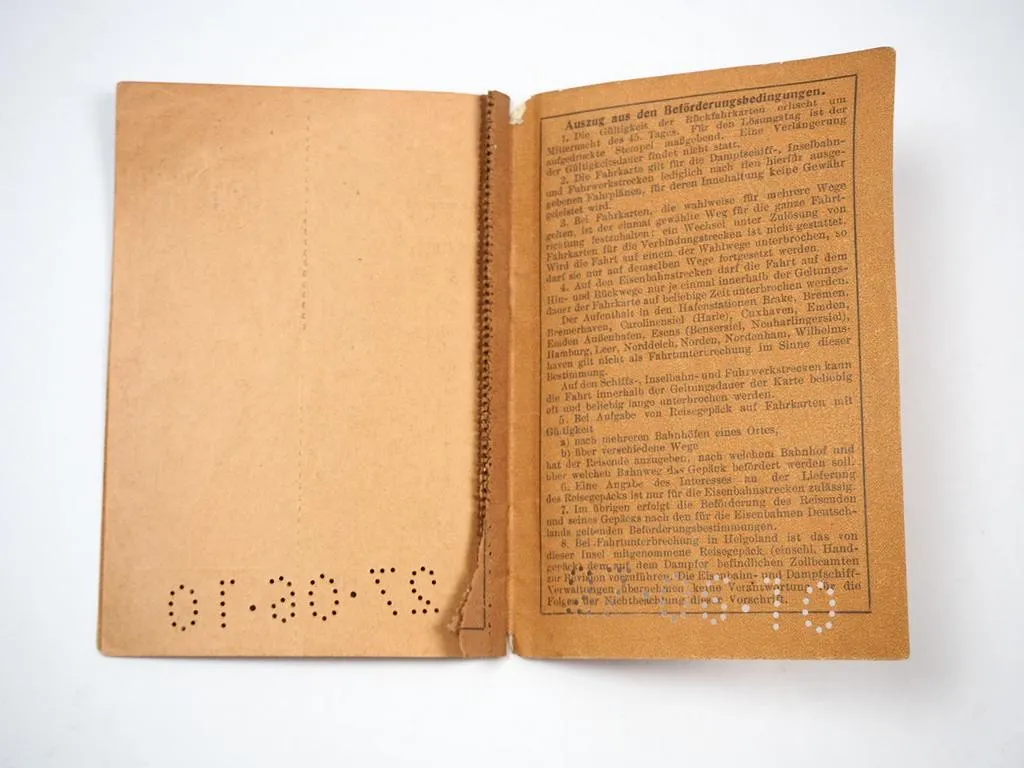 Auszug aus den Beförderungsbedingungen.
1. Die Gültigkeit der Rückfahrkarten erlischt um
Mitternacht des 45. Tages. Für den Lösungstag ist der
aufgedruckte Stempel maßgebend. Eine Verlängerung
der Gültigkeitsdauer findet nicht statt.
2. Die Fahrkarte gilt für die Dampfschiff-, Inselbahn-
und Fuhrwerkstrecken lediglich nach den hierfür ausge-
gebenen Fahrplänen, für deren Innehaltung keine Gewähr
geleistet wird.
3. Bei Fahrkarten, die wahlweise für mehrere Wege
gelten, ist der einmal gewählte Weg für die ganze Fahrt-
richtung festzuhalten; ein Wechsel unter Zulösung von
Fahrkarten für die Verbindungstrecken ist nicht gestattet.
Wird die Fahrt auf einem der Wahlwege unterbrochen, so
darf sie nur auf demselben Wege fortgesetzt werden.
4. Auf den Eisenbahnstrecken darf die Fahrt auf dem
Hin- und Rückwege nur je einmal innerhalb der Geltungs-
dauer der Fahrkarte auf beliebige Zeit unterbrochen werden.
Der Aufenthalt in den Hafenstationen Brake, Bremen,
Bremerhaven, Carolinensiel (Harle), Cuxhaven, Emden,
Emden Außenhafen, Esens (Bensersiel, Neuharlingersiel),
Hamburg, Leer, Norddeich, Norden, Nordenham, Wilhelms-
haven gilt nicht als Fahrtunterbrechung im Sinne dieser
Bestimmung.
Auf den Schiffs-, Inselbahn- und Fuhrwerkstrecken kann
die Fahrt innerhalb der Geltungsdauer der Karte beliebig
oft und beliebig lange unterbrochen werden.
5. Bei Aufgabe von Reisegepäck auf Fahrkarten mit
Gültigkeit
a) nach mehreren Bahnhöfen eines Ortes,
b) über verschiedene Wege
hat der Reisende anzugeben, nach welchem Bahnhof und
über welchen Bahnweg das Gepäck befördert werden soll.
6. Eine Angabe des Interesses an der Lieferung
des Reisegepäcks ist nur für die Eisenbahnstrecken zulässig.
7. Im übrigen erfolgt die Beförderung des Reisenden
und seines Gepäcks nach den für die Eisenbahnen Deutsch-
lands geltenden Beförderungsbestimmungen.
8. Bei Fahrtunterbrechung in Helgoland ist das von
dieser Insel mitgenommene Reisegepäck (einschl. Hand-
gepäck) dem auf dem Dampfer befindlichen Zollbeamten
zur Revision vorzuführen. Die Eisenbahn- und Dampfschiff-
Verwaltungen übernehmen keine Verantwortung für die
Folgen der Nichtbeachtung dieser Vorschrift.